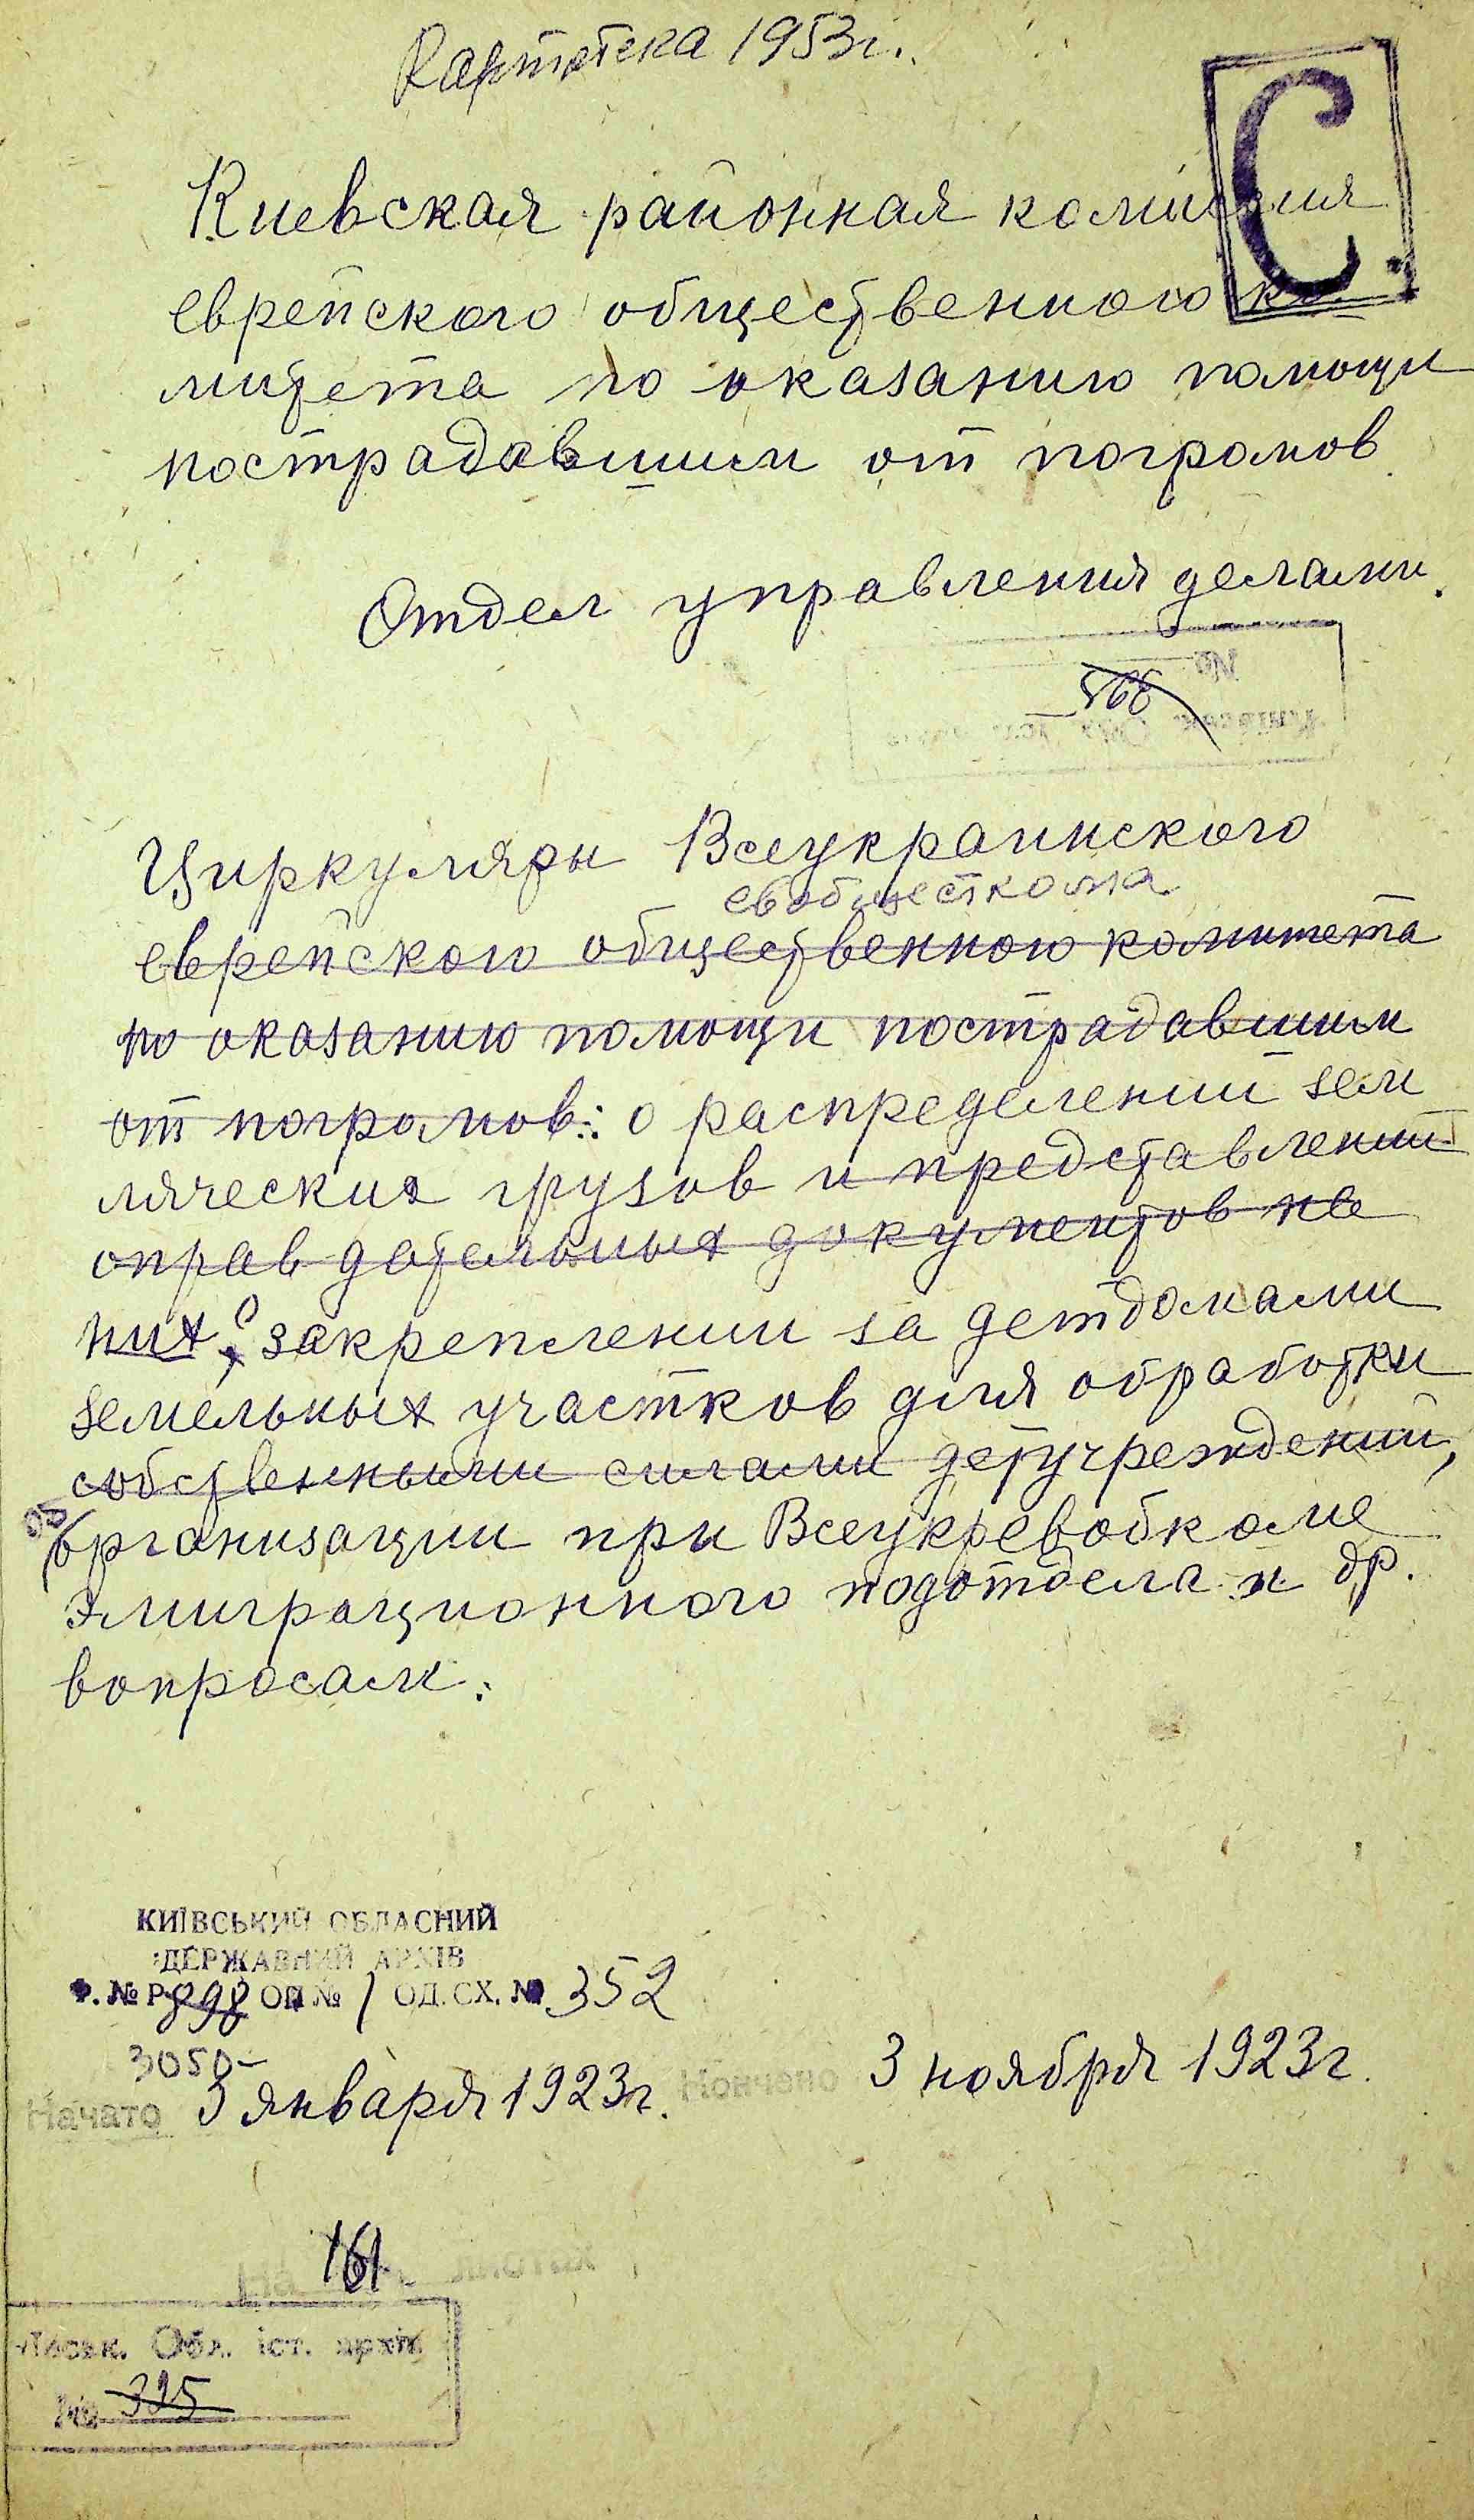 Картотека 1953г.
С
Киевская районная комиссия
еврейского общественного ко-
митета по оказанию помощи
пострадавшим от погромов
Отдел управления делами.
№
566
Циркуляры Всеукраинского
евобщесткома
еврейского общественного комитета
по оказанию помощи пострадавшим
от погромов: о распределении зем
ляческих грузов и представлении
оправдательных документов на
них, о закреплении за детдомами
земельных участков для обработки
собственными силами детучреждений,
об организации при Всеукревобкоме
эмиграционного подотдела и др.
вопросам.
КИЇВСЬКИЙ ОБЛАСНИЙ
ДЕРЖАВНИЙ АРХІВ
Ф. № Р 898 ОП № 1 ОД. СХ. № 352
3050
Начато 3 января 1923г. Кончено 3 ноября 1923г.
На 161 листах
Обл. іст. архів
№ 325